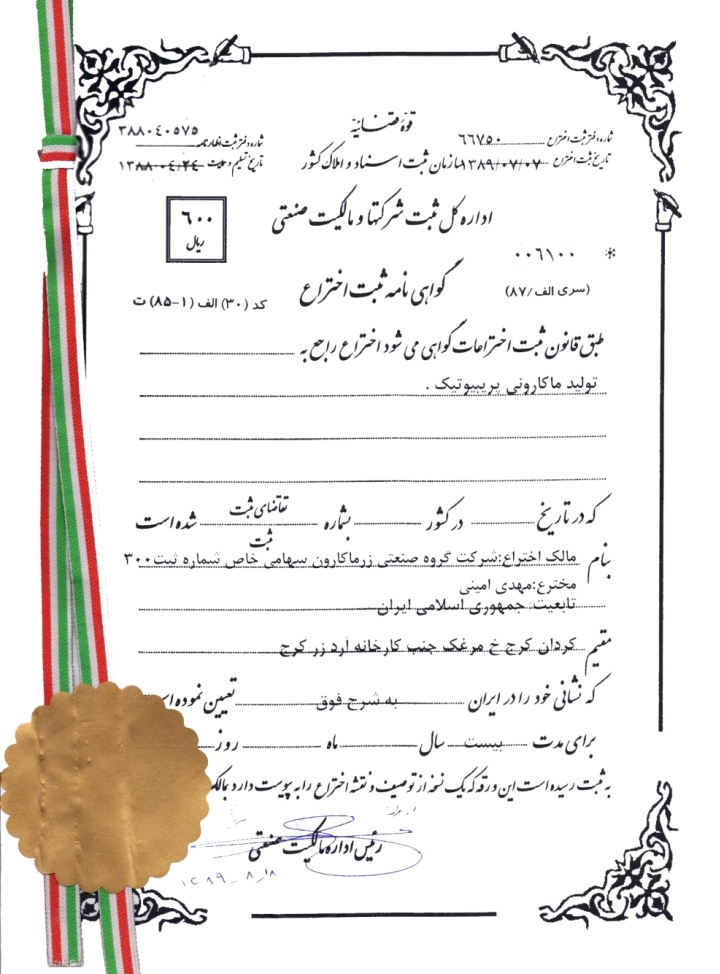 قوهٔ قضائیه
شماره دفتر ثبت اختراع ۶۶۷۵۰
شماره دفتر ثبت اظهارنامه ۳۸۸۰۴۰۵۷۵
سازمان ثبت اسناد و املاک کشور
تاریخ ثبت اختراع ۱۳۸۹/۰۷/۰۷
تاریخ تسلیم و ثبت ۱۳۸۸-۰۴/۲۴
اداره کل ثبت شرکتها و مالکیت صنعتی
۶۰۰
ریال
* ۰۰۶۱۰۰
(سری الف/۸۷)
گواهی نامه ثبت اختراع
کد (۳۰) الف (۱-۸۵) ت
طبق قانون ثبت اختراعات گواهی می شود اختراع راجع به
تولید ماکارونی پریبیوتیک .
که در تاریخ در کشور بشماره تقاضای ثبت شده است
ثبت
بنام مالک اختراع:شرکت گروه صنعتی زرماکارون سهامی خاص شماره ثبت۳۰۰
مخترع:مهدی امینی
تابعیت: جمهوری اسلامی ایران
مقیم کردان کرج خ مرغک جنب کارخانه آرد زر کرج
که نشانی خود را در ایران به شرح فوق تعیین نموده
برای مدت بیست سال ماه روز
به ثبت رسیده است این ورقه که یک نسخه از توصیف و نقشه اختراع را به پیوست دارد
رئیس اداره مالکیت صنعتی
۱۳۸۹_۸_۱۸